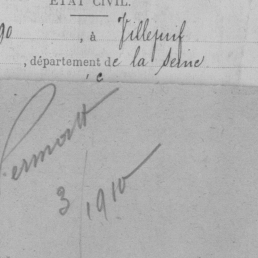 ÉTAT CIVIL.
90, à Villejuif
, département de la Seine
c
3 1910